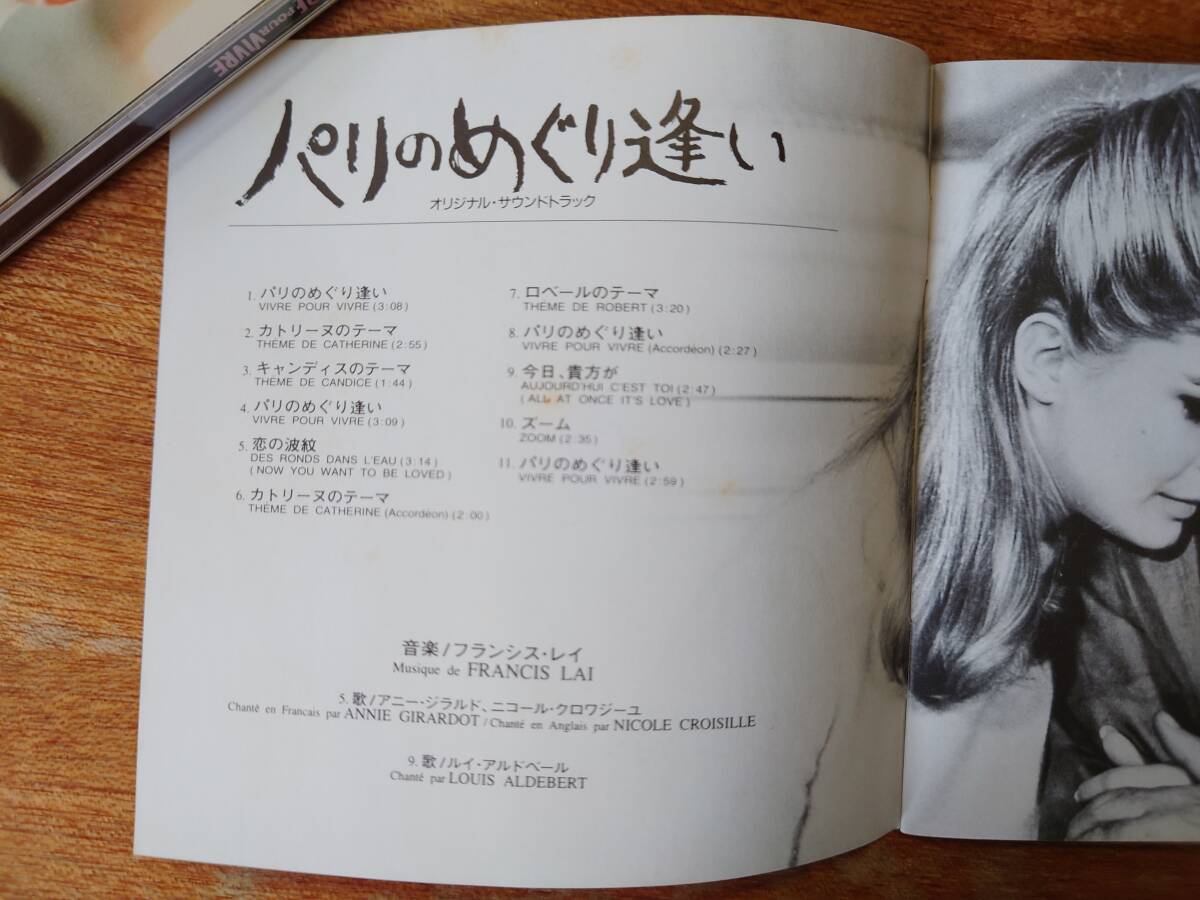 RÉ POUR VIVRE
パリのめぐり逢い
オリジナル・サウンドトラック
1. パリのめぐり逢い
VIVRE POUR VIVRE (3:08)
2. カトリーヌのテーマ
THÈME DE CATHERINE (2:55)
3. キャンディスのテーマ
THÈME DE CANDICE (1:44)
4. パリのめぐり逢い
VIVRE POUR VIVRE (3:09)
5. 恋の波紋
DES RONDS DANS L'EAU (3:14)
(NOW YOU WANT TO BE LOVED)
6. カトリーヌのテーマ
THÈME DE CATHERINE (Accordéon) (2:00)
7. ロベールのテーマ
THÈME DE ROBERT (3:20)
8. パリのめぐり逢い
VIVRE POUR VIVRE (Accordéon) (2:27)
9. 今日、貴方が
AUJOURD'HUI C'EST TOI (2:47)
(ALL AT ONCE IT'S LOVE)
10. ズーム
ZOOM (2:35)
11. パリのめぐり逢い
VIVRE POUR VIVRE (2:59)
音楽/フランシス・レイ
Musique de FRANCIS LAI
5. 歌/アニー・ジラルド、ニコール・クロワジーユ
Chanté en Francais par ANNIE GIRARDOT / Chanté en Anglais par NICOLE CROISILLE
9. 歌/ルイ・アルドベール
Chanté par LOUIS ALDEBERT